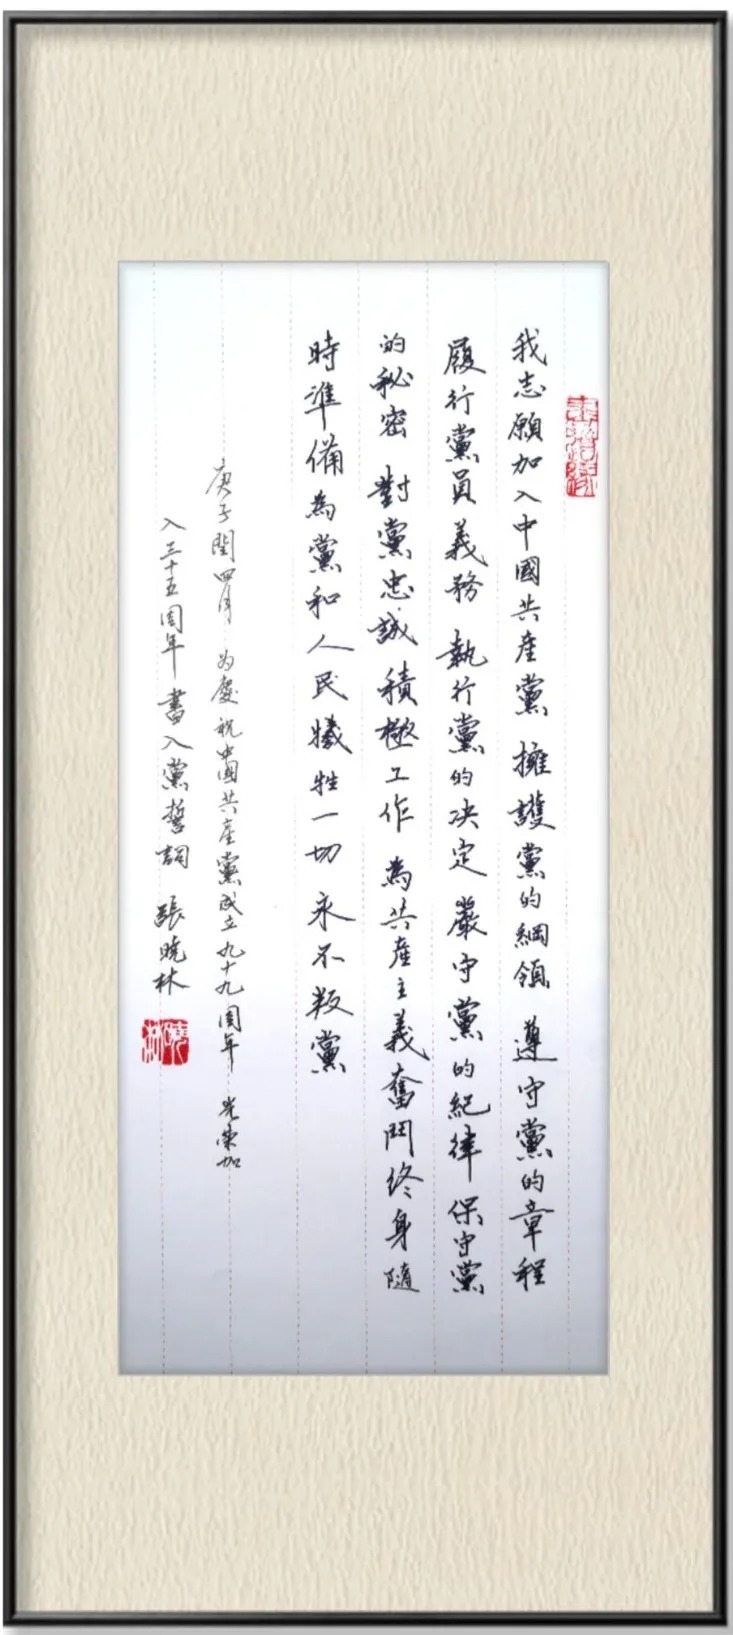 我志願加入中國共産黨 擁護黨的綱領 遵守黨的章程
履行黨員義務 執行黨的决定 嚴守黨的紀律 保守黨
的秘密 對黨忠誠 積極工作 為共産主義奮鬥终身 隨
時準備為黨和人民犧牲一切 永不叛黨
庚子閏四月 为慶祝中國共産黨成立九十九周年 光荣加
入三十五周年 書入黨誓詞 張曉林